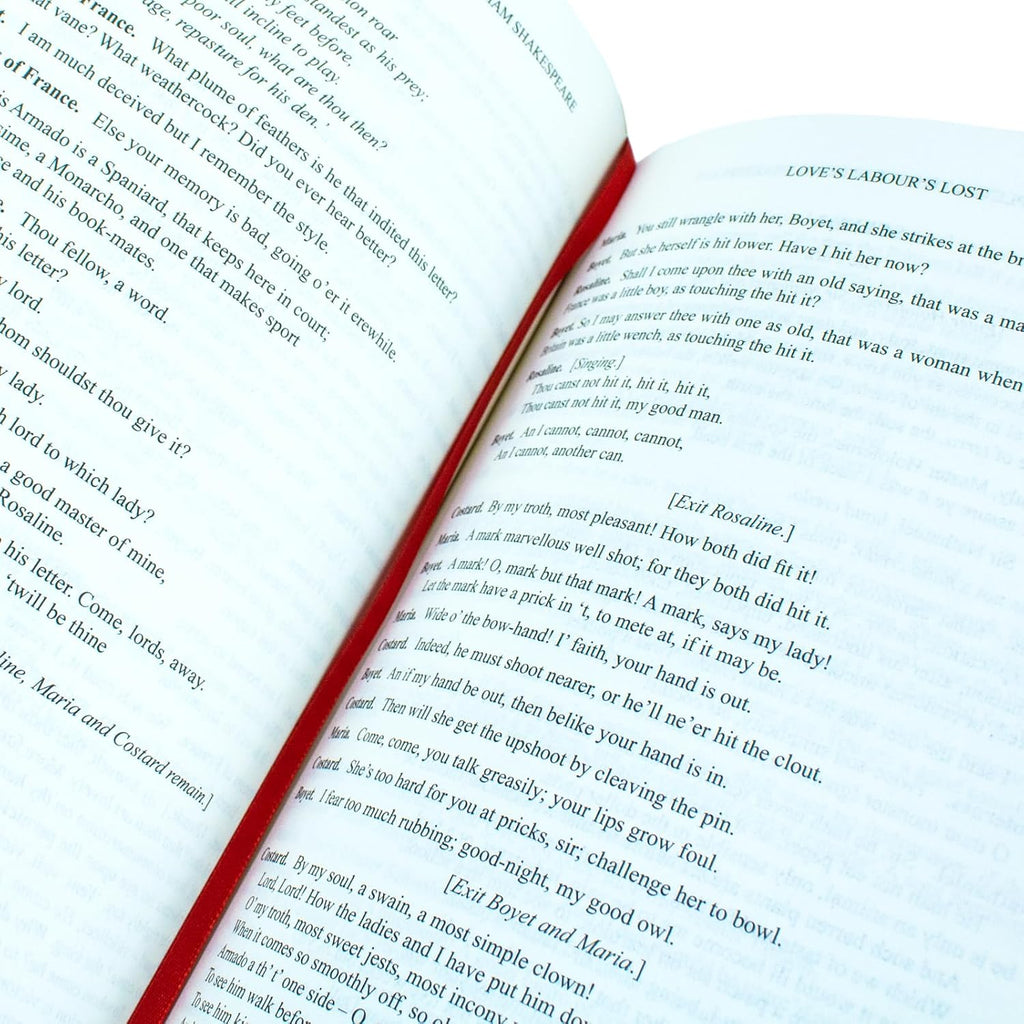 AM SHAKESPEARE
on roar
landest as his prey;
y feet before,
ill incline to play.
poor soul, what are thou then?
age, repasture for his den. '
France. What plume of feathers is he that indited this letter?
hat vane? What weathercock? Did you ever hear better?
t. I am much deceived but I remember the style.
of France. Else your memory is bad, going o'er it erewhile.
is Armado is a Spaniard, that keeps here in court;
sime, a Monarcho, and one that makes sport
ce and his book-mates.
e. Thou fellow, a word.
his letter?
y lord.
hom shouldst thou give it?
y lady.
h lord to which lady?
a good master of mine,
Rosaline.
his letter. Come, lords, away.
'twill be thine
line, Maria and Costard remain.]
LOVE'S LABOUR'S LOST
Maria. You still wrangle with her, Boyet, and she strikes at the br
Boyet. But she herself is hit lower. Have I hit her now?
Rosaline. Shall I come upon thee with an old saying, that was a ma
France was a little boy, as touching the hit it?
Boyet. So I may answer thee with one as old, that was a woman when
Britain was a little wench, as touching the hit it.
Rosaline. [Singing.]
Thou canst not hit it, hit it, hit it,
Thou canst not hit it, my good man.
Boyet. An I cannot, cannot, cannot,
An I cannot, another can.
[Exit Rosaline.]
Costard. By my troth, most pleasant! How both did fit it!
Maria. A mark marvellous well shot; for they both did hit it.
Boyet. A mark! O, mark but that mark! A mark, says my lady!
Let the mark have a prick in 't, to mete at, if it may be.
Maria. Wide o' the bow-hand! I' faith, your hand is out.
Costard. Indeed, he must shoot nearer, or he'll ne'er hit the clout.
Boyet. An if my hand be out, then belike your hand is in.
Costard. Then will she get the upshoot by cleaving the pin.
Maria. Come, come, you talk greasily; your lips grow foul.
Costard. She's too hard for you at pricks, sir; challenge her to bowl.
Boyet. I fear too much rubbing; good-night, my good owl.
[Exit Boyet and Maria.]
Costard. By my soul, a swain, a most simple clown!
Lord, Lord! How the ladies and I have put him down!
O' my troth, most sweet jests, most incony v
When it comes so smoothly off, so ob
Armado a th' t'one side – O,
To see him walk befor
To see him ki